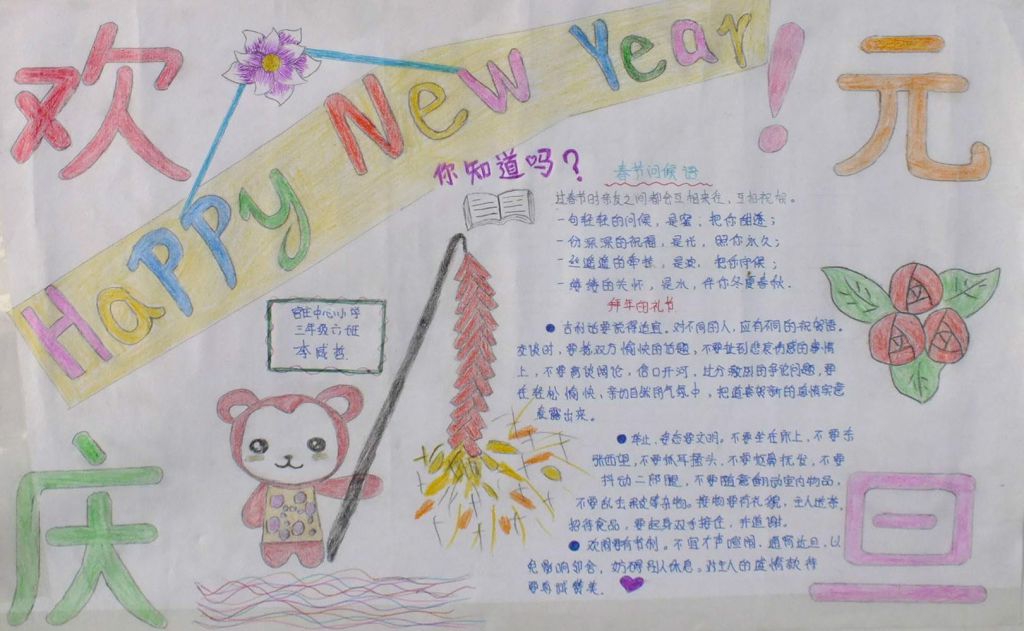 欢
庆
元
旦
Happy New Year!
你知道吗？
春节问候语
过春节时亲友之间都会互相来往，互相祝贺。
一句轻轻的问候，是蜜，把你围透；
一份深深的祝福，是光，照你永久；
一丝遥遥的牵挂，是爱，把你守候；
一缕缕的关怀，是水，伴你冬夏春秋。
拜年的礼节
吉利话要说得适宜。对不同的人，应有不同的祝贺语。
交谈时，要拣双方愉快的话题，不要扯到悲哀伤感的事情
上，不要高谈阔论，信口开河，过分激烈的争论问题，要
在轻松愉快、亲切自然的气氛中，把道喜贺新的真情实意
表露出来。
举止，姿态要文明。不要坐在床上，不要东
张西望，不要抓耳搔头，不要挖鼻抚发，不要
抖动二郎腿，不要随意翻动室内物品，
不要乱丢果皮等杂物。接物要有礼貌，主人进茶，
招待食品，要起身双手接住，并道谢。
欢闹要有节制。不宜大声喧闹，通宵达旦，以
免影响邻舍，妨碍别人休息。对主人的盛情款待
要真诚赞美。
中心小学
三年级六班
李